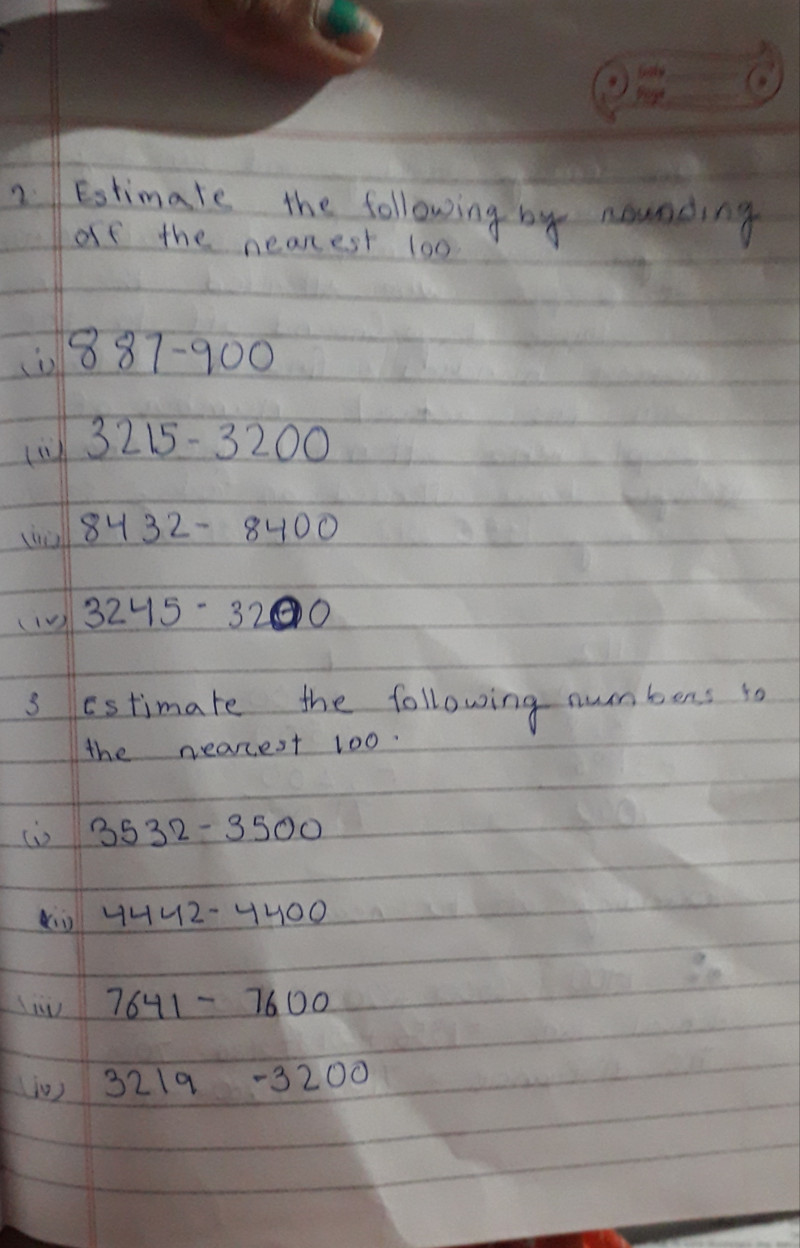 2. Estimate the following by rounding
off the nearest 100.
(i) 887-900
(ii) 3215-3200
(iii) 8432- 8400
(iv) 3245- 3200
3 Estimate the following numbers to
the nearest 100.
(i) 3532-3500
(ii) 4442-4400
(iii) 7641- 7600
(iv) 3219 -3200